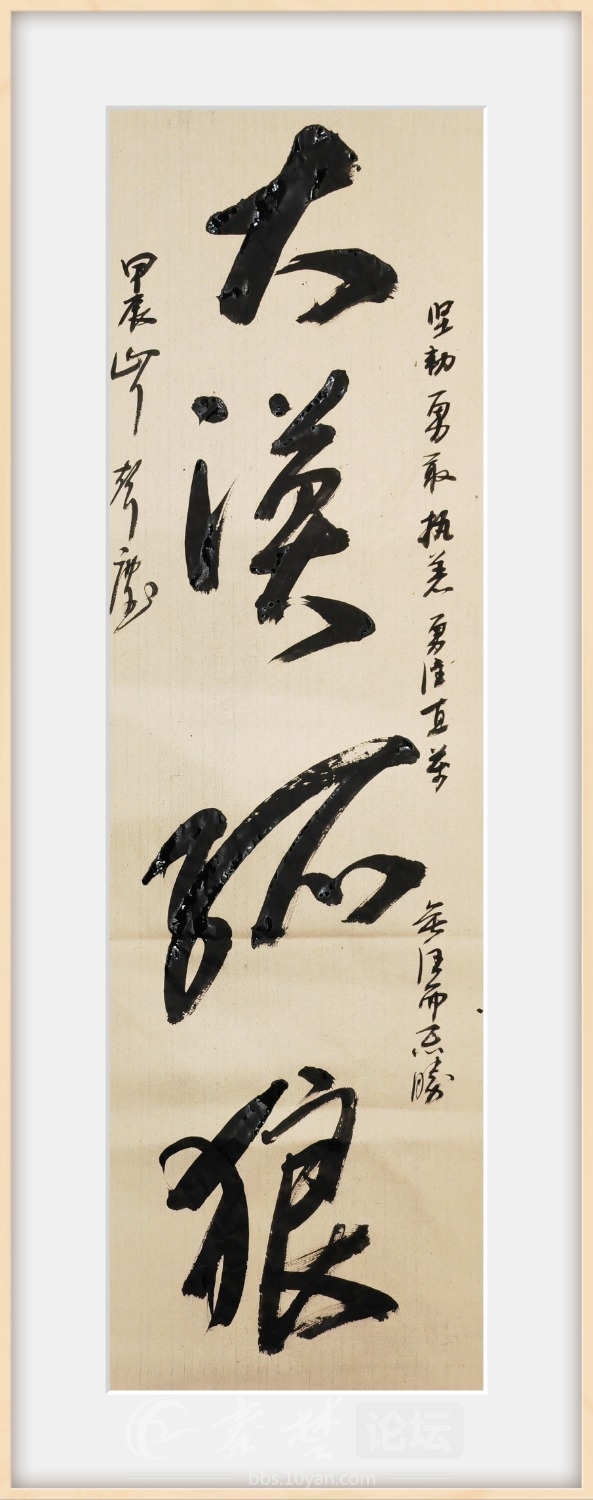 坚韧勇敢执着勇往直前
無往而不勝
大漠孤狼
甲辰
秦楚论坛
bbs.10yan.com